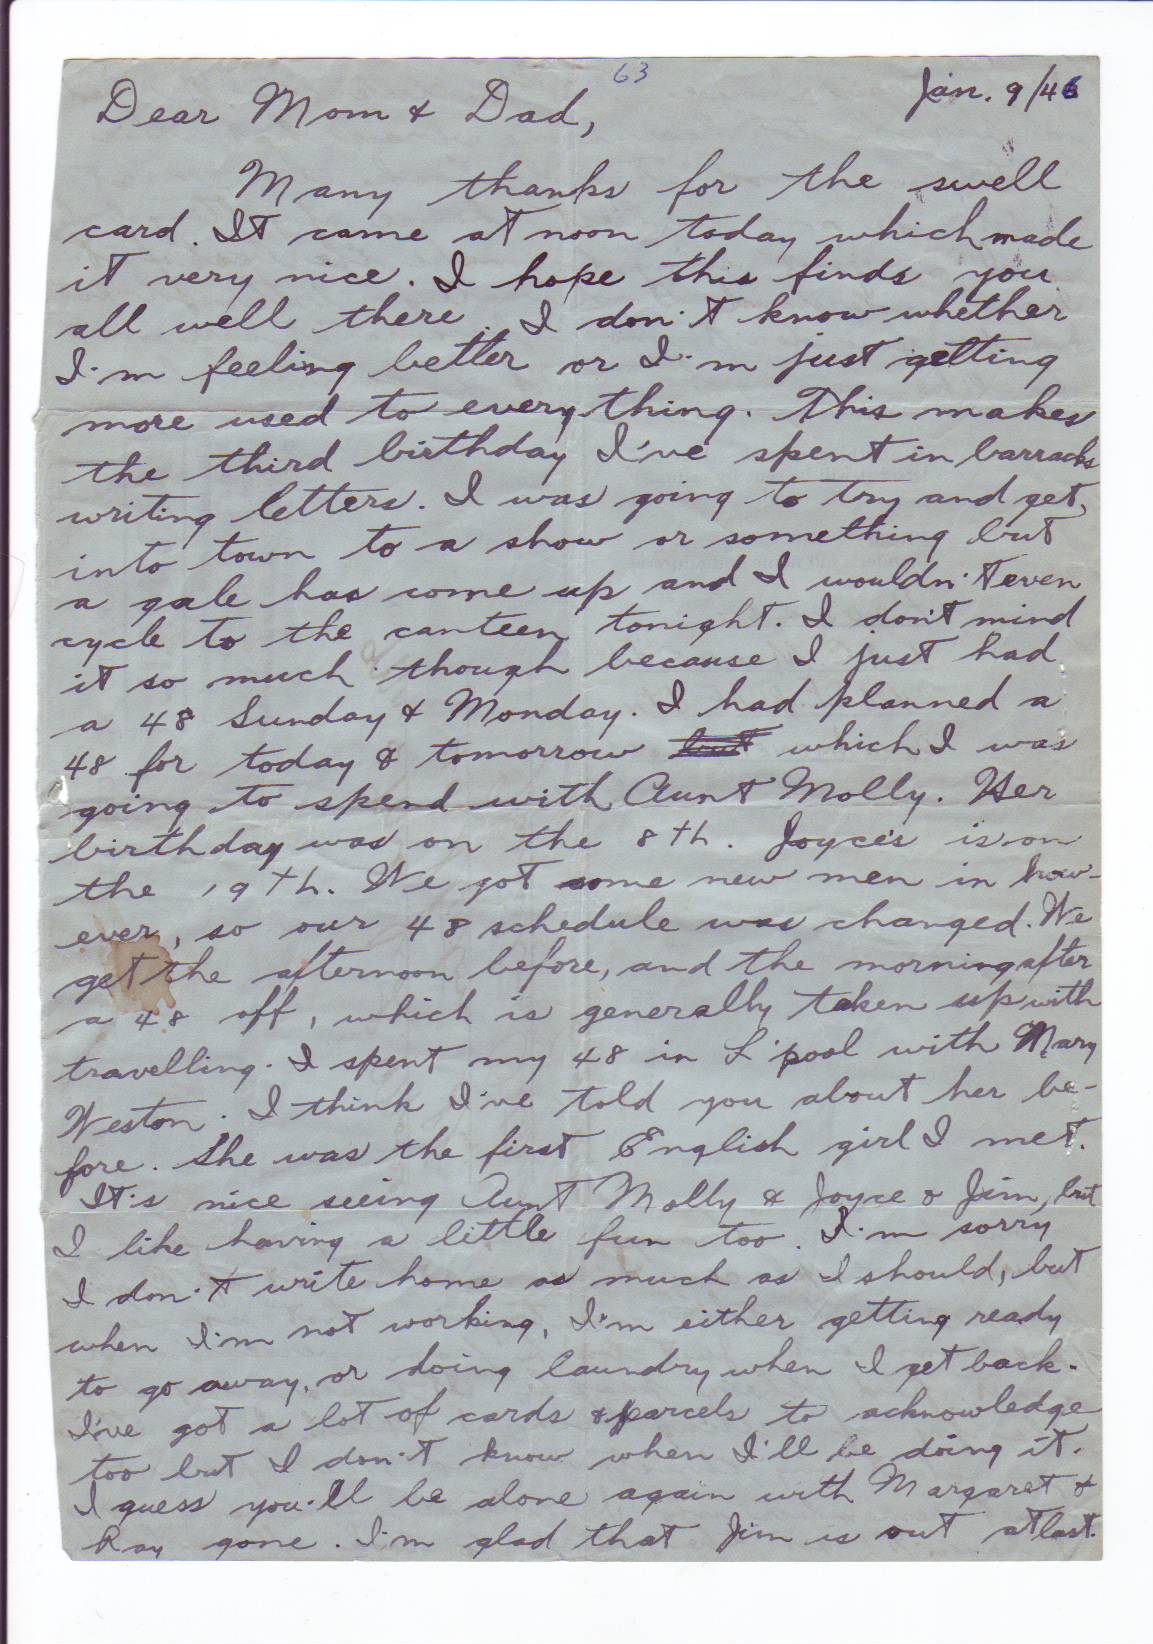 63
Jan. 9/46
Dear Mom & Dad,
Many thanks for the swell
card. It came at noon today which made
it very nice. I hope this finds you
all well there. I don't know whether
I'm feeling better or I'm just getting
more used to every thing. This makes
the third birthday I've spent in barracks
writing letters. I was going to try and get
into town to a show or something but
a gale has come up and I wouldn't even
cycle to the canteen tonight. I don't mind
it so much though because I just had
a 48 Sunday & Monday. I had planned a
48 for today & tomorrow but which I was
going to spend with Aunt Molly. Her
birthday was on the 8th. Joyce's is on
the 19th. We got some new men in how-
ever, so our 48 schedule was changed. We
get the afternoon before, and the morning after
a 48 off, which is generally taken up with
travelling. I spent my 48 in L'pool with Mary
Weston. I think I've told you about her be-
fore. She was the first English girl I met.
It's nice seeing Aunt Molly & Joyce & Jim, but
I like having a little fun too. I'm sorry
I don't write home as much as I should, but
when I'm not working, I'm either getting ready
to go away, or doing laundry when I get back.
I've got a lot of cards & parcels to acknowledge
too but I don't know when I'll be doing it.
I guess you'll be alone again with Margaret &
Ray gone. I'm glad that Jim is out at last.